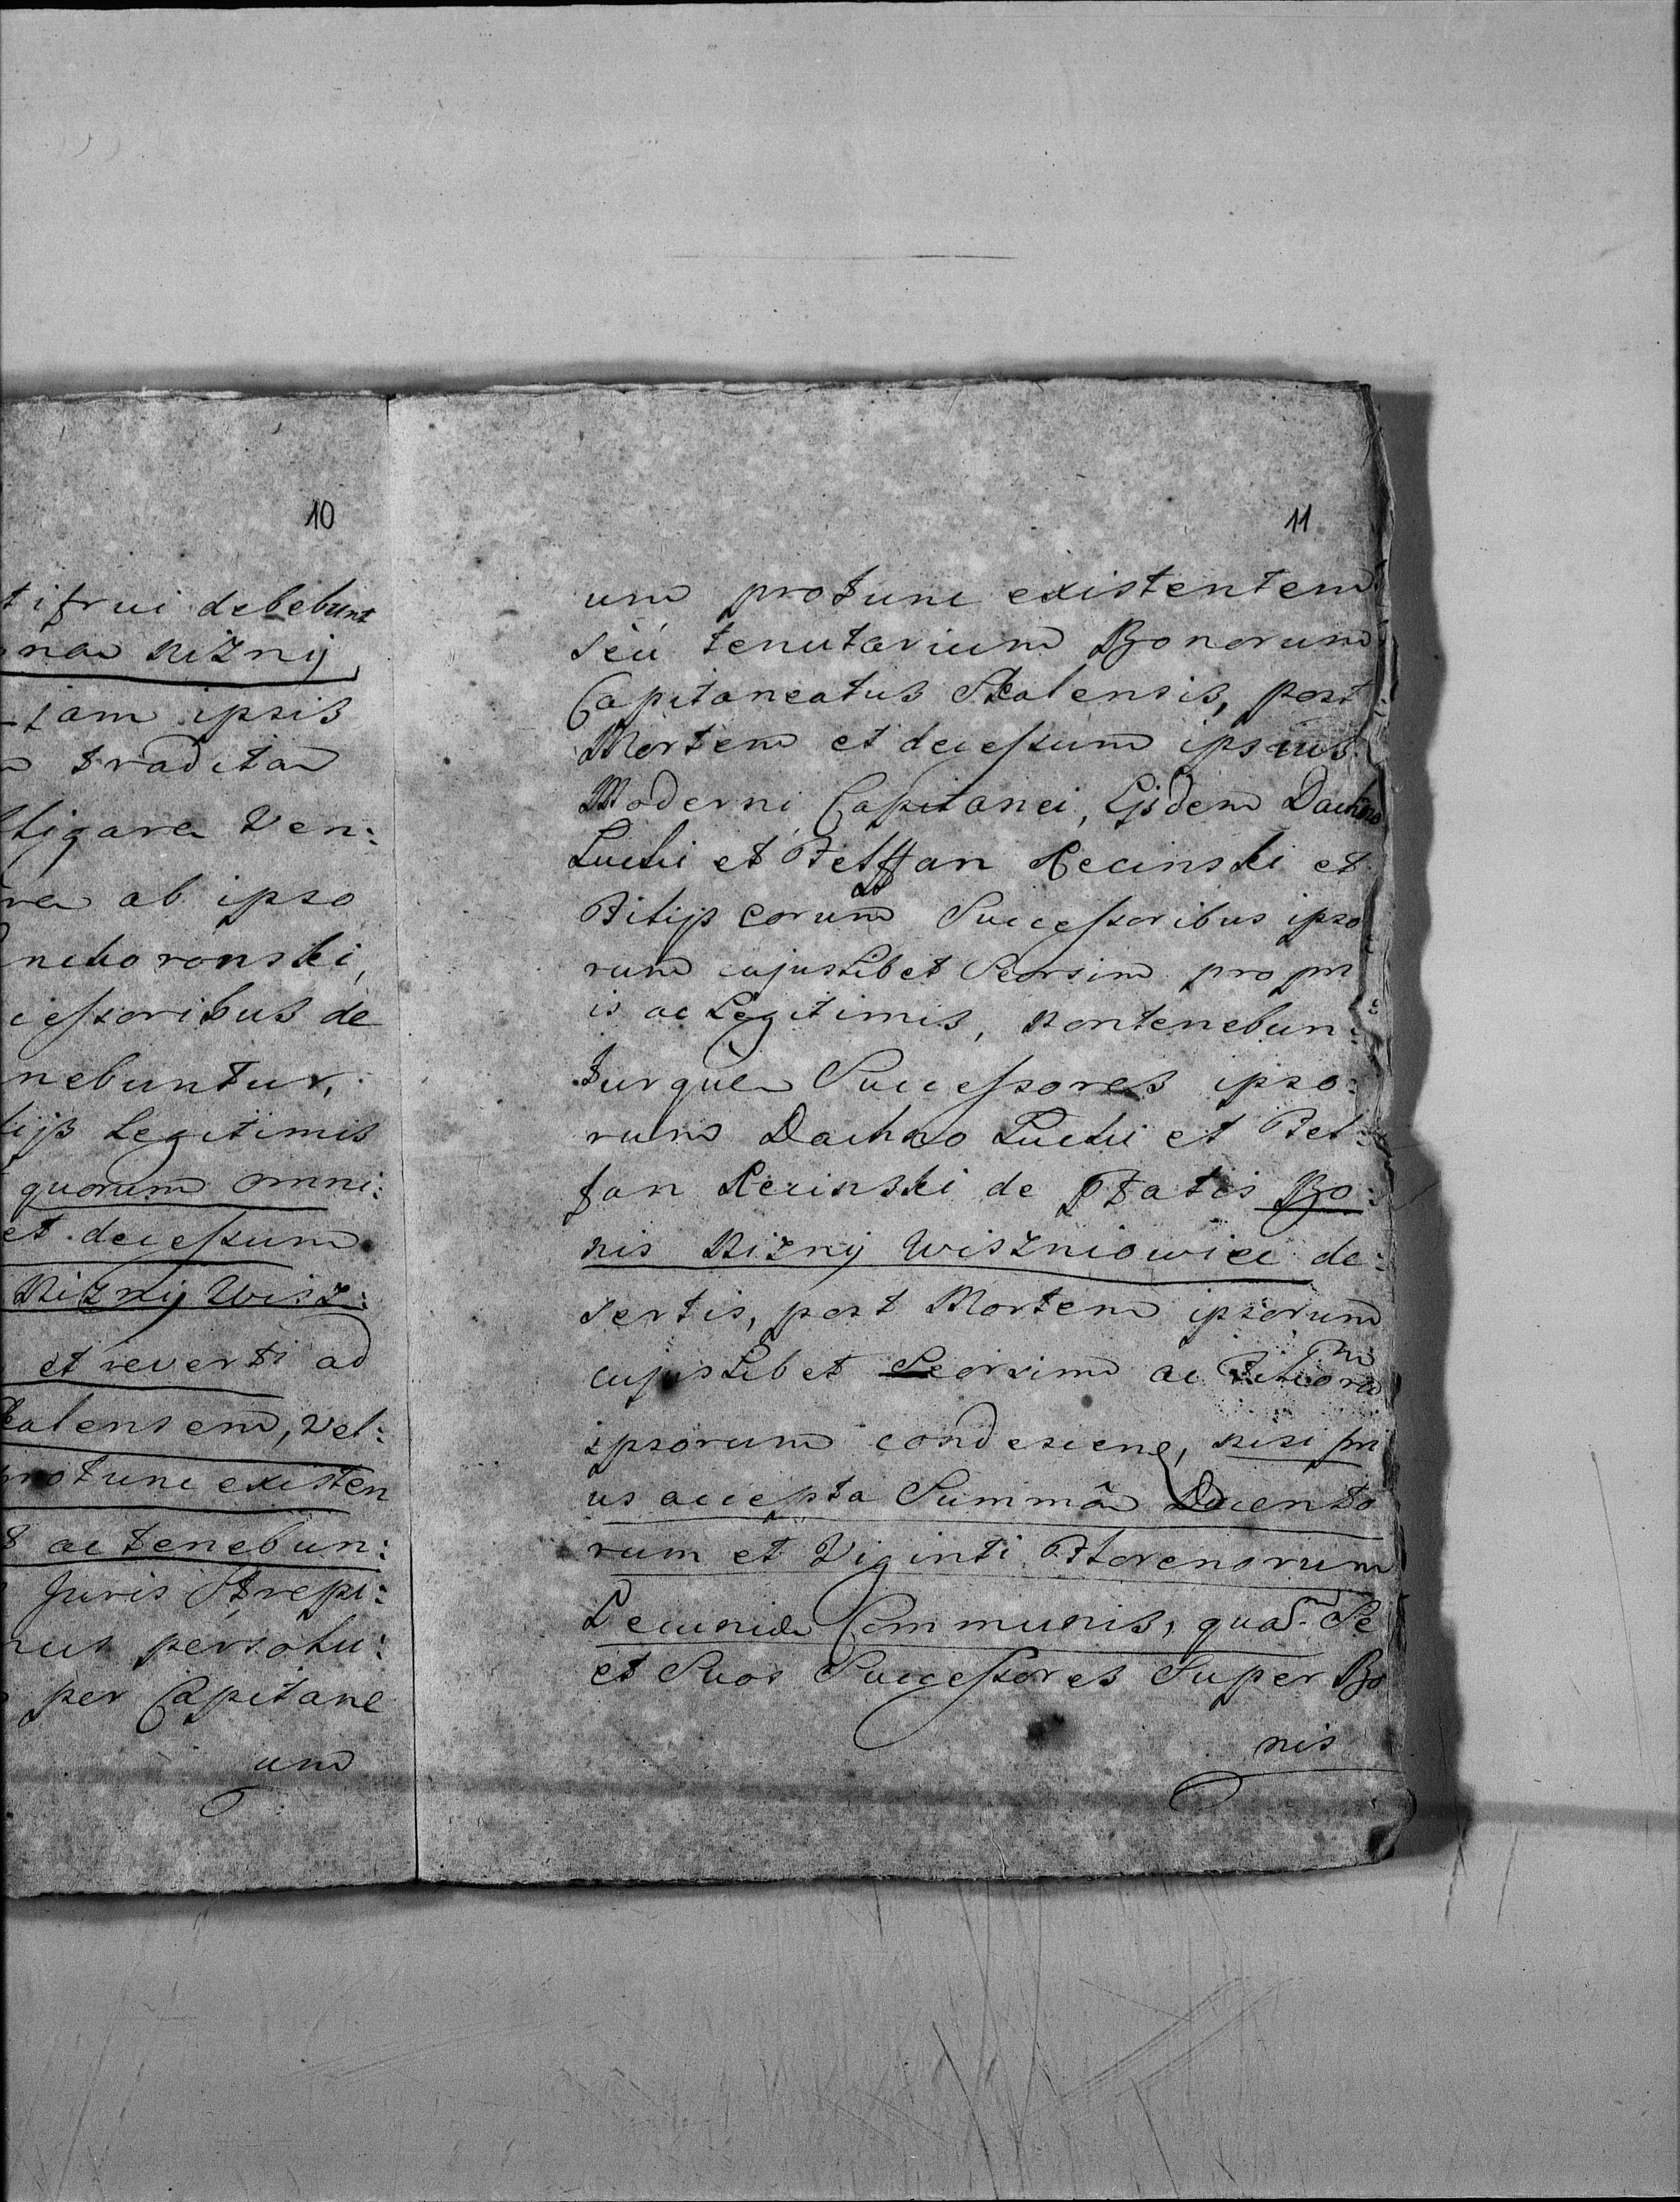 10
tifrui debebunt
na Nizny
jam ipsis
tradita
stigare Ven:
ra ab ipso
nihoronski,
cessoribus de
nebuntur,
lijs Legitimis
quorum omni:
et decessum
Nizny Wisz:
et reverti ad
kalensem, vel:
protunc existen
t ac tenebun:
Juris strepi:
nus persolu:
per Capitane
um
11
um protunc existentem
seu tenutarium Bonorum
Capitaneatus Skalensis, post
Mortem et decessum ipsius
Moderni Capitanei, Ejsdem Dachno
Luchi et Fetfan Recinski et
Filijs eorum Successoribus ipso
rum cujuslibet Seorsim propri
is ac Legitimis, Nontenebun:
turque Successores ipso:
rum Dachno Luchi et Fet:
fan Recinski de Pstatis Bo:
nis Nizny Wiszniowice de:
sertis, post Mortem ipsorum
cujuslibet Seorsim ac Filiorum
ipsorum condescene, nisi pri
us accepta Summa Ducento
rum et Viginti Florenorum
Pecuniae Communis, quam Se
et Suos Successores Super Bo
nis